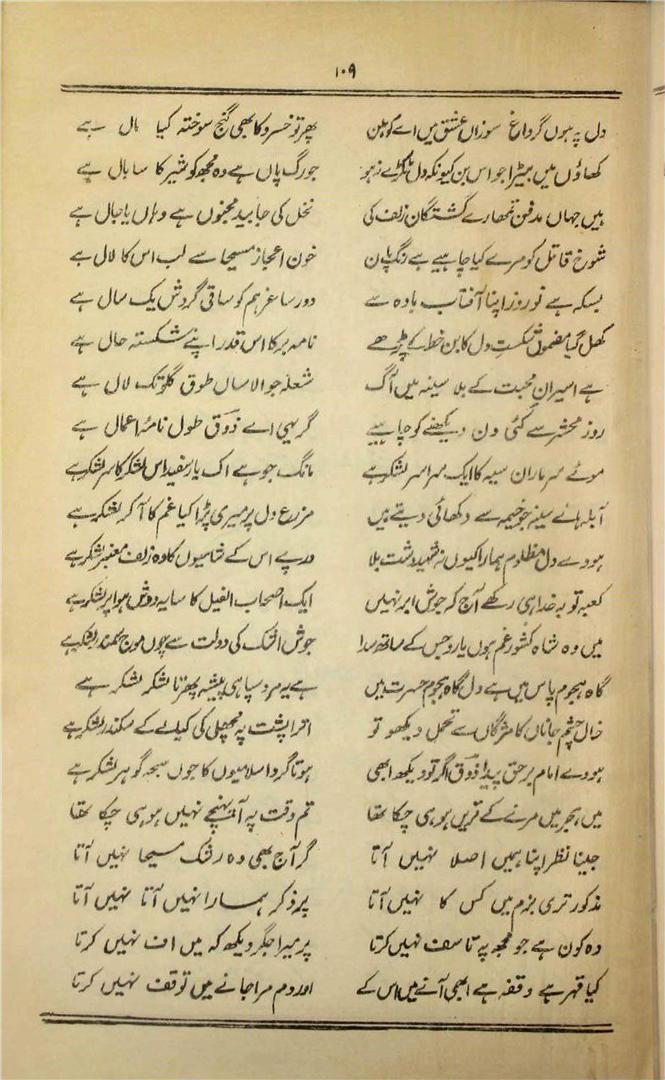 ۱۰۹
دل پہ ہوں گر داغ سوزاں عشق میں اے کوہکن پھر تو خسرو کا بھی گنج سوختہ کیا مال ہے
کھاؤں میں بیڑا جو اس بن کیونکہ دل ٹکڑے نہو جو رگ پاں ہے وہ مجھ کو شیر کا سا بال ہے
ہیں جہاں مدفن تمھارے کشتگان زلف کی نخل کی جا بید مجنوں ہے وہاں یا جال ہے
شوخ قاتل کو مرے کیا چاہیے ہے رنگ پان خون اعجاز مسیحا سے لب اس کا لال ہے
بسکہ ہے نوروز اپنا آفتاب بادہ سے دور ساغر ہم کو ساقی گردش یک سال ہے
کھل گیا مضمون شکست دل کا بن خط کے پڑھے نامہ بر کا اس قدر اپنے شکستہ حال ہے
ہے اسیران محبت کے بلا سینہ میں آگ شعلہ جوالا ساں طوق گلو تک لال ہے
روز محشر سے کئی دن دیکھنے کو چاہیے گر یہی اے ذوق طول نامۂ اعمال ہے
موئے سر ماران سیہ کا ایک سراسر لشکر ہے مانگ جو ہے اک مار سفید اس لشکر کا سر لشکر ہے
آبلہ ہائے سینہ جو خیمہ سے دکھائی دیتے ہیں مزرع دل پر میری پڑا کیا غم کا آکر لشکر ہے
ہووے دل مظلوم ہمارا کیوں نہ شہید دشت بلا درپے اس کے شامیوں کا وہ زلف معنبر لشکر ہے
کعبہ تو یہ خدا ہی رکھے آج کہ جوش ابر نہیں ایک اصحاب الفیل کا سایہ دوش ہوا پر لشکر ہے
میں وہ شاہ کشور غم ہوں یارو جس کے ساتھ سدا جوش اشک کی دولت سے جوں موج سمندر لشکر ہے
گاہ ہجوم یاس میں ہے دل گاہ ہجوم حسرت میں ہے یہ مرد سپاہی پیشہ پھرتا لشکر لشکر ہے
خال چشم جاناں کا مژگاں سے تحمل دیکھو تو اترا پشت پہ مچھلی کی کیا لے کے سکندر لشکر ہے
ہووے امام برحق پیدا ذوق اگر تو دیکھ ابھی ہوتا گرد اسلامیوں کا جوں سبحہ گوہر لشکر ہے
میں ہجر میں مرنے کے قریں ہو ہی چکا تھا تم وقت پہ آ پہنچے نہیں ہو ہی چکا تھا
جینا نظر اپنا ہمیں اصلا نہیں آتا گر آج بھی وہ رشک مسیحا نہیں آتا
مذکور تری بزم میں کس کا نہیں آتا پر ذکر ہمارا نہیں آتا نہیں آتا
وہ کون ہے جو مجھ پہ تاسف نہیں کرتا پر میرا جگر دیکھ کہ میں اف نہیں کرتا
کیا قہر ہے وقفہ ہے ابھی آنے میں اس کے اور دم مرا جانے میں توقف نہیں کرتا